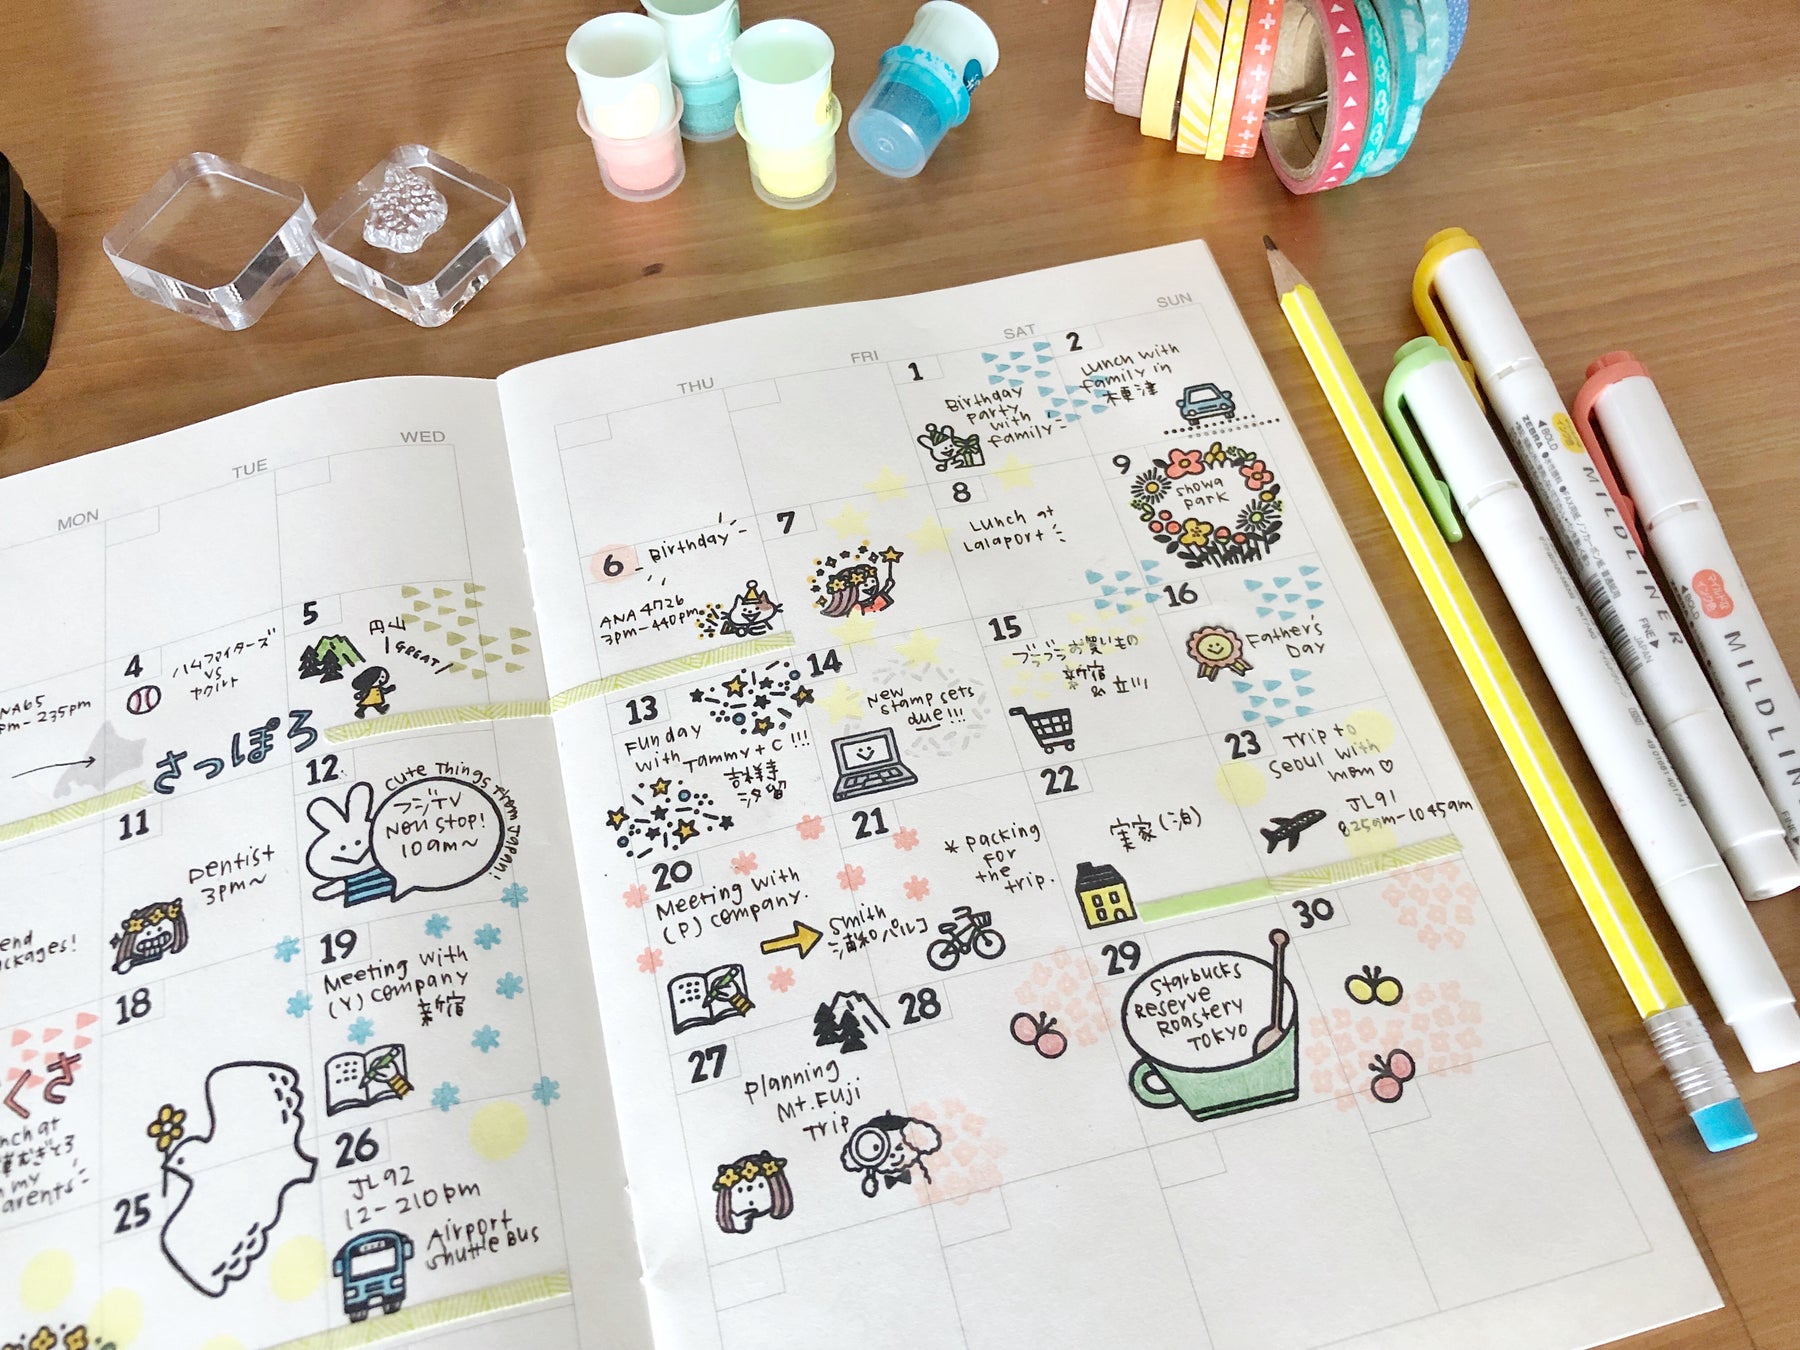 MON
TUE
WED
THU
FRI
SAT
SUN
1
Birthday
party
with
family
2
Lunch with
family in
木更津
4
ハムファイターズ
vs
ヤクルト
5
円山
GREAT
さっぽろ
6
Birthday
ANA 4726
3pm-440pm
7
8
Lunch at
Lalaport
9
Showa
park
11
Dentist
3pm~
12
Cute Things from Japan!
フジTV
Non stop!
10am~
13
Funday
with Tammy + C !!!
吉祥寺
汐留
14
New
stamp sets
due!!!
15
ブラブラお買いもの
新宿
& 立川
16
Father's
Day
18
19
Meeting with
(Y) company
新宿
20
Meeting with
(P) company.
Smith
浦和パルコ
21
* packing
for
the
trip.
22
実家(泊)
23
Trip to
Seoul with
mom ♡
JL91
825am-1045am
25
26
JL92
12-210pm
Airport
Shuttle Bus
27
Planning
Mt. Fuji
Trip
28
29
Starbucks
Reserve
Roastery
TOKYO
30
BOLD
ZEBRA
MILDLINER
FINE
JAPAN
MILDLINER